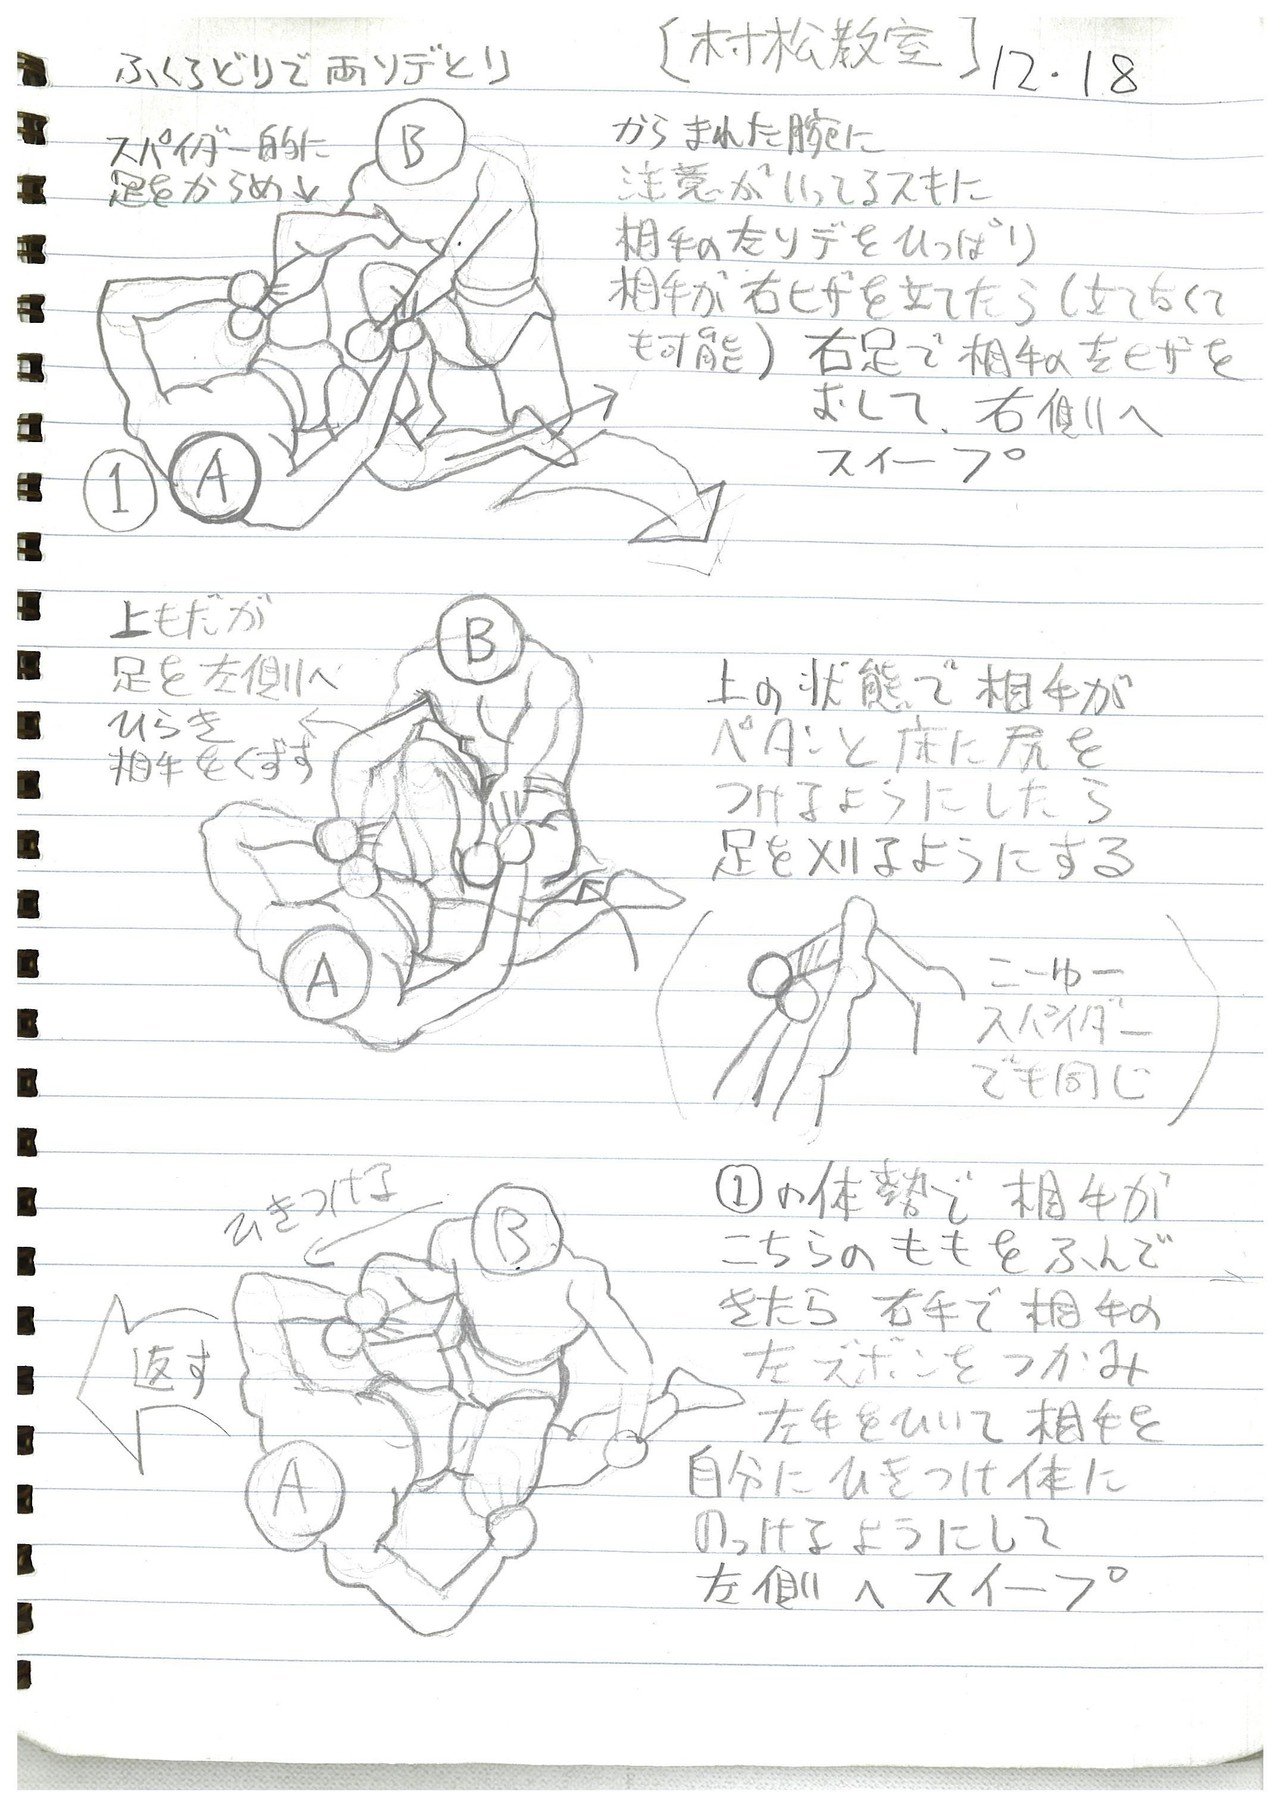 ふくろどりで両ソデとり
[村松教室] 12.18
スパイダー的に
足をからめ↓
B
からまれた腕に
注意がいってるスキに
相手の左ソデをひっぱり
相手が右ヒザを立てたら(立てなくて
も可能) 右足で相手の左ヒザを
おして、右側へ
スイープ
1
A
上もだが
足を左側へ
ひらき
相手をくずす
B
A
上の状態で相手が
ペタンと床に尻を
つけるようにしたら
足を刈るようにする
こーゆー
スパイダー
でも同じ
ひきつける
B
返す
A
①の体勢で相手が
こちらのももをふんで
きたら右手で相手の
左ズボンをつかみ
左手をひいて相手を
自分にひきつけ体に
のっけるようにして
左側へスイープ